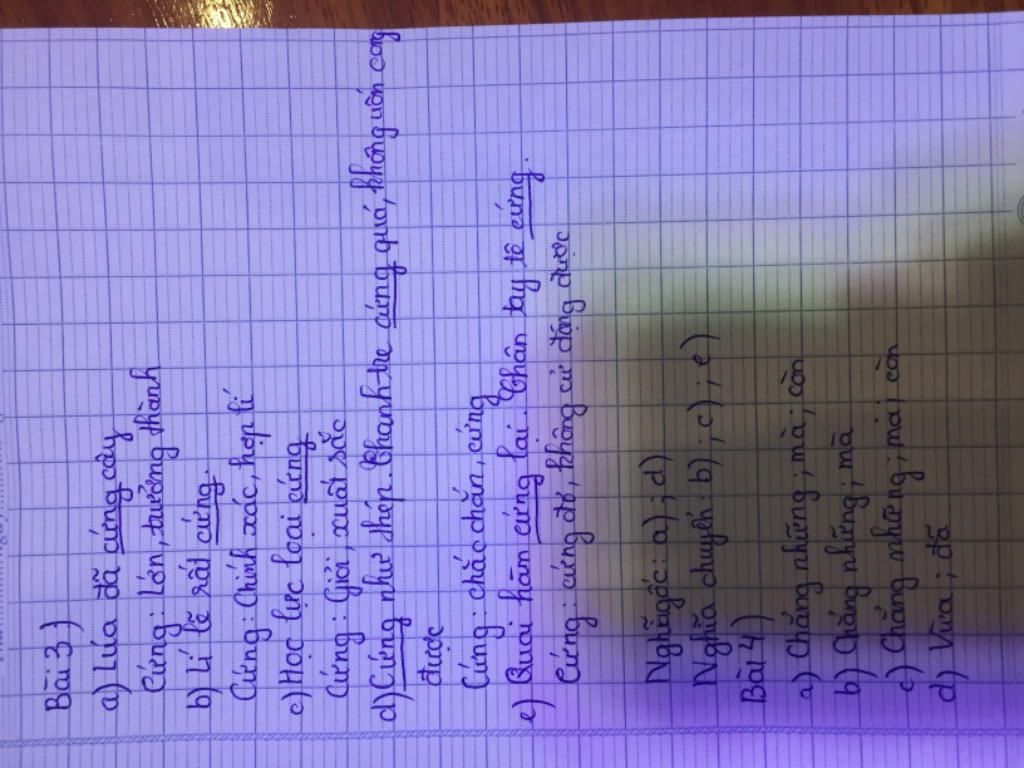 Bài 3)
a) Lúa đã cứng cây
Cứng: Lớn, trưởng thành
b) Lí lẽ rất cứng.
Cứng: Chính xác, hợp lí
c) Học lực loại cứng
Cứng: Giỏi, xuất sắc
d) Cứng như thép. Thanh tre cứng quá, không uốn cong
được
Cứng: chắc chắn, cứng
e) Quai hàm cứng lại. Chân tay tê cứng.
Cứng: cứng đơ, không cử động được
Nghĩa gốc: a); d)
Nghĩa chuyển: b); c); e)
Bài 4)
a) Chẳng những; mà; còn
b) Chẳng những; mà
c) Chẳng những; mà; còn
d) Vừa; đã